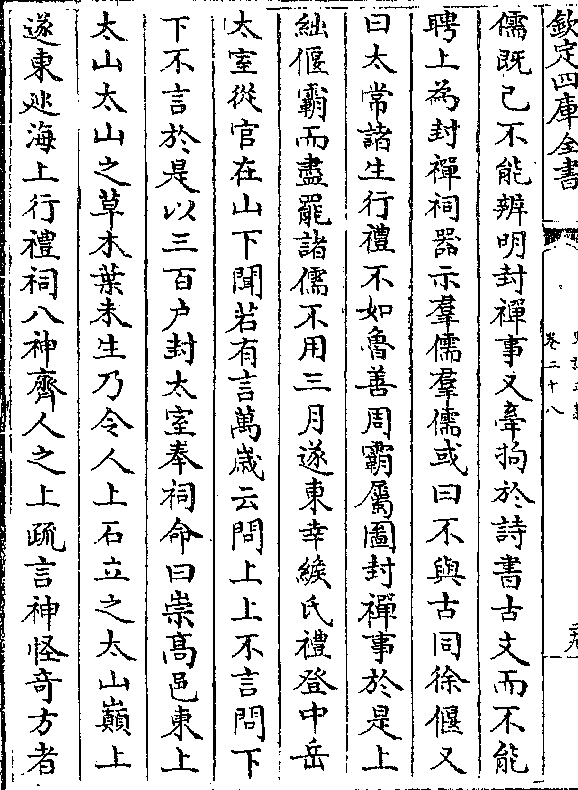 欽定四庫全書
卷二十八
儒既已不能辨明封禪事又牽拘於詩書古文而不能
聘上為封禪祠器示羣儒羣儒或曰不與古同徐偃又
曰太常諸生行禮不如魯善周霸屬圖封禪事於是上
絀偃霸而盡罷諸儒不用三月遂東幸緱氏禮登中岳
太室從官在山下聞若有言萬歲云問上上不言問下
下不言於是以三百户封太室奉祠命曰崇髙邑東上
太山太山之草木葉未生乃令人上石立之太山巔上
遂東廵海上行禮祠八神齊人之上疏言神怪奇方者